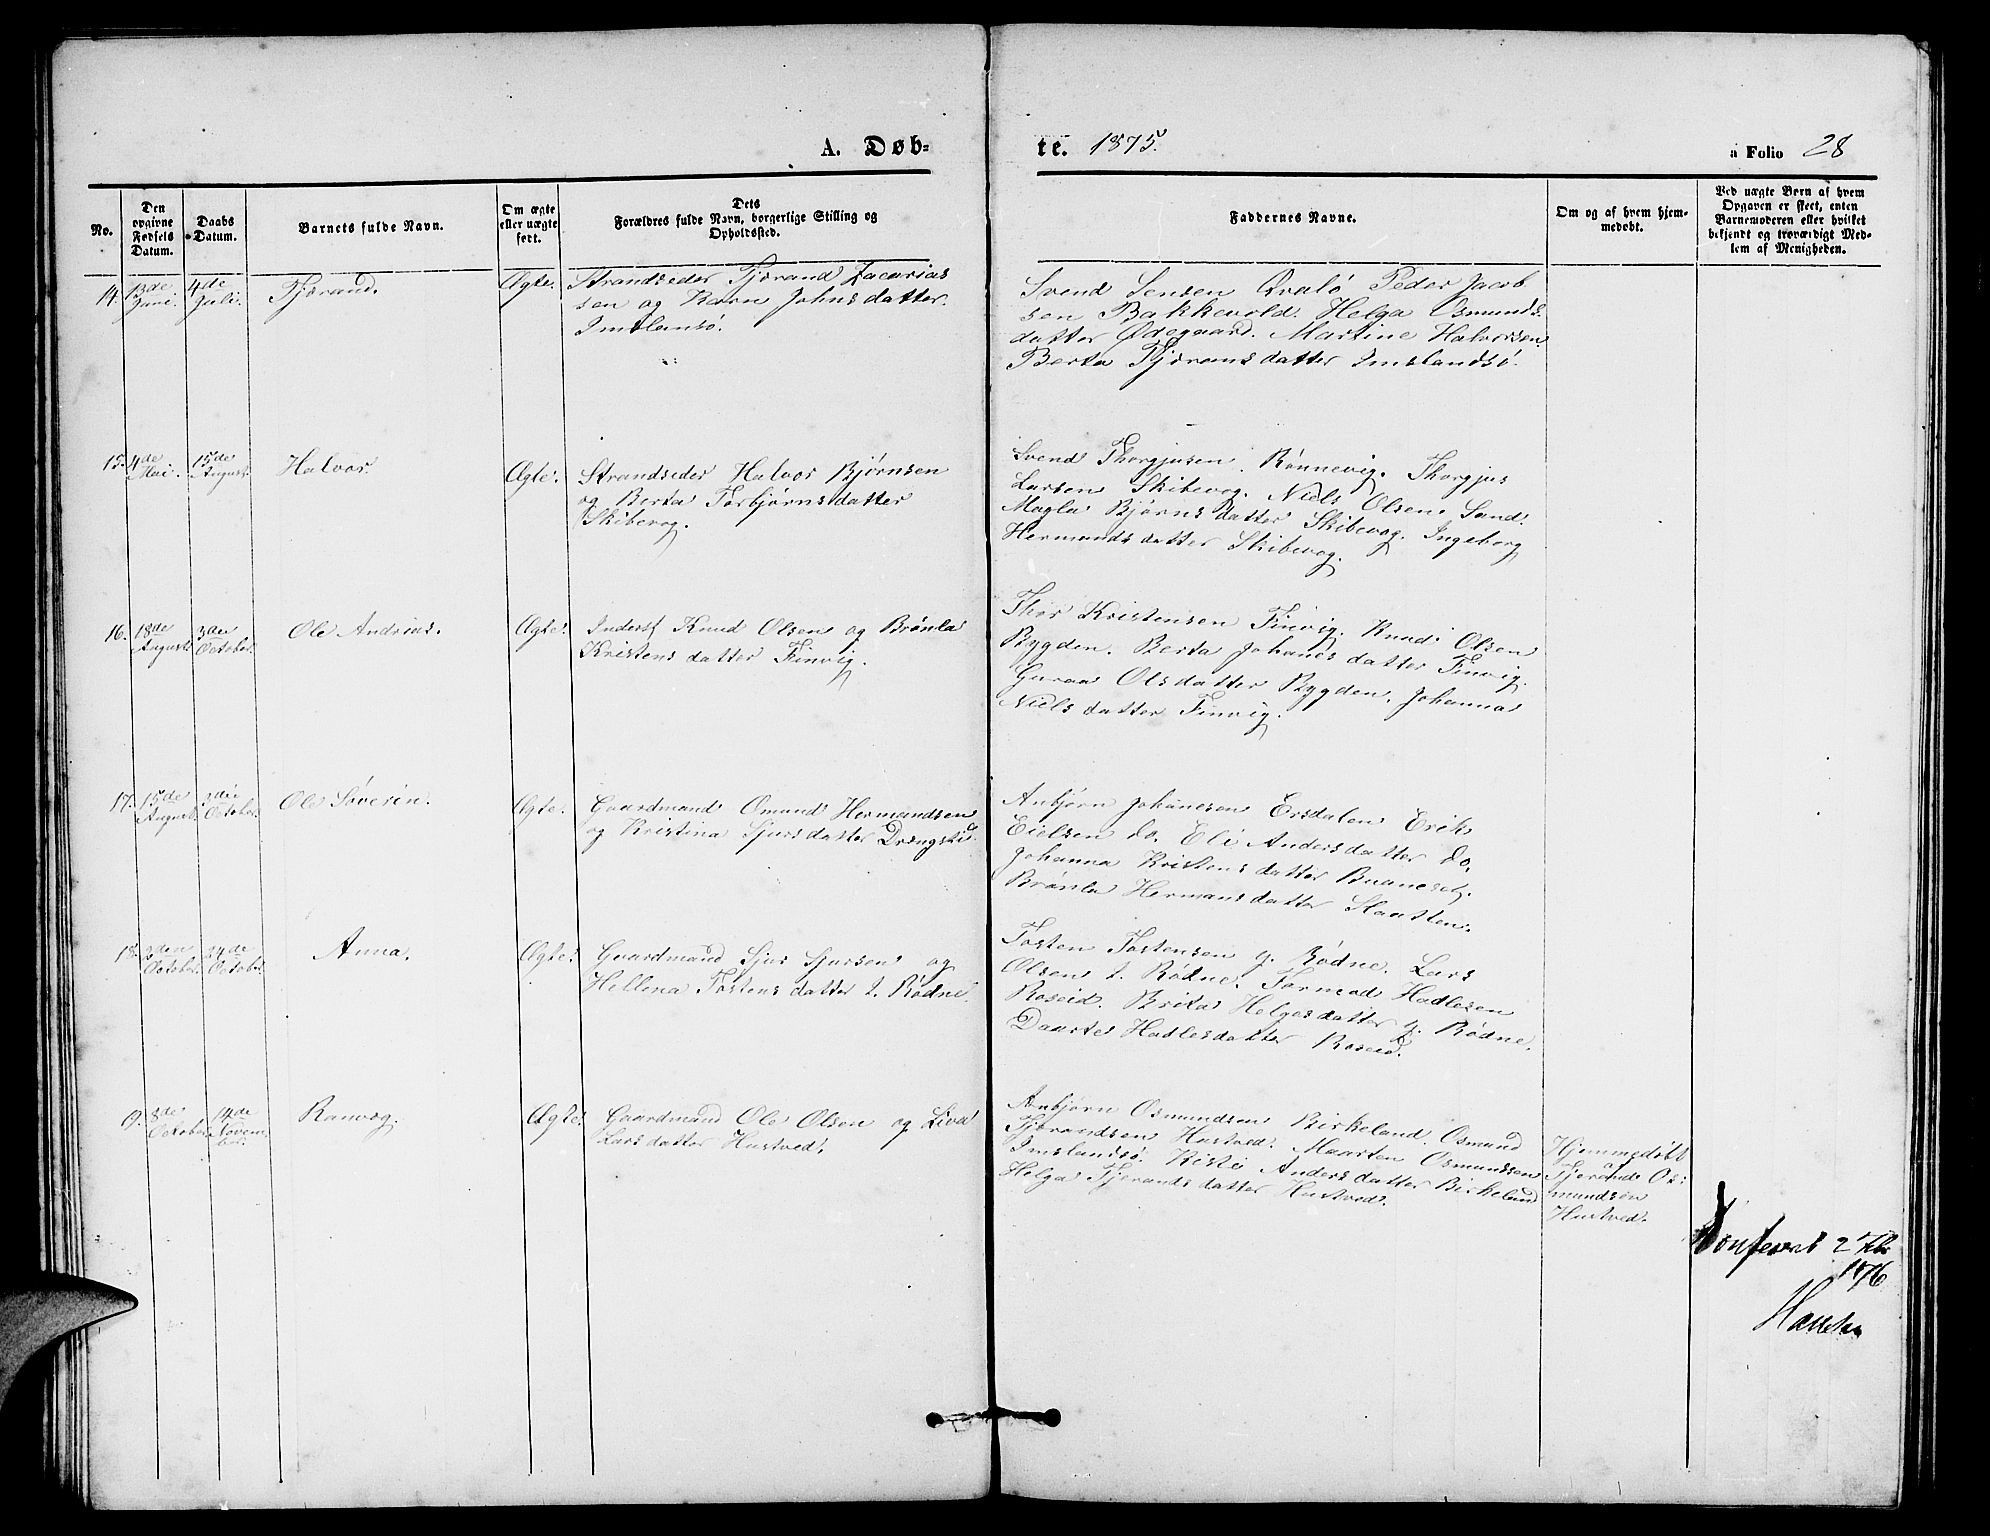 A. Døb-
te. 1875.
a Folio 28
No.
Den
opgivne
Fødsels
Datum.
Daabs
Datum.
Barnets fulde Navn.
Om ægte
eller uægte
født.
Dets
Forældres fulde Navn, borgerlige Stilling og
Opholdssted.
Faddernes Navne.
Om og af hvem hjem-
medøbt.
Ved uægte Børn af hvem
Opgaven er skeet, enten
Barnemoderen eller hvilket
bekjendt og troværdigt Med-
lem af Menigheden.
14.
13de
Juni.
4de
Juli.
Tjørand.
Ægte.
Strandseder Tjørand Zacarias
sen og Karn Johnsdatter.
Imslansø.
Svend Sensen Qvalø Peder Jacob
sen Bakkevold. Helga Osmunds
datter Ødegaard. Martine Halvorsen.
Berta Tjøransdatter Imslandsø.
15.
4de
Mai.
15de
August.
Halvor
Ægte.
Strandseder Halvor Bjørnsen
og Berta Torbjørnsdatter
Skibevog.
Svend Thorgjusen Rønnevig. Thorgjus
Larsen Skibevog. Niels Olsen Sand.
Magla Bjørnsdatter Skibevog. Ingeborg
Hermundsdatter Skibevog.
16.
18de
August
3die
October.
Ole Andrias.
Ægte.
Inderst Knud Olsen og Brønla
Kristensdatter Finvig.
Thor Kristensen Finvig. Knud Olsen
Bygden. Berta Johanesdatter Finvig.
Guraa Olsdatter Bygden. Johanna
Nielsdatter Finvig.
17.
15de
August.
3die
October.
Ole Søverin.
Ægte.
Gaardmand Omund Hermandsen
og Kristina Sjursdatter Drengskid
Anbjørn Johanesen Ersdalen Erik
Eielsen do. Eli Andersdatter do.
Johanna Kristensdatter Buaneset.
Brønla Hermansdatter Slaatten.
18.
October.
24de
October.
Anna.
Ægte.
Gaardmand Sjur Sjursen og
Hellena Tostensdatter I. Rødne.
Tosten Tostensen y. Rødne. Lars
Olsen I. Rødne. Tormod Hadlesen
Roseid. Brita Helgesdatter y. Rødne.
Daarte Hadlesdatter Roseid.
9.
8de
October.
14de
Novem
ber.
Ranvog.
Ægte.
Gaardmand Ole Olsen og Liva
Larsdatter Hustved.
Anbjørn Osmundsen Birkeland. Osmund
Tjørandsen Hustved. Maarten Osmundsen
Imslandsø. Kisti Andersdatter Birkeland
Helga Tjerandsdatter Hustved.
Hjemmedøbt
Tjerand Os:
mundsøn
Hustved.
Konfereret 2 Feb
1876